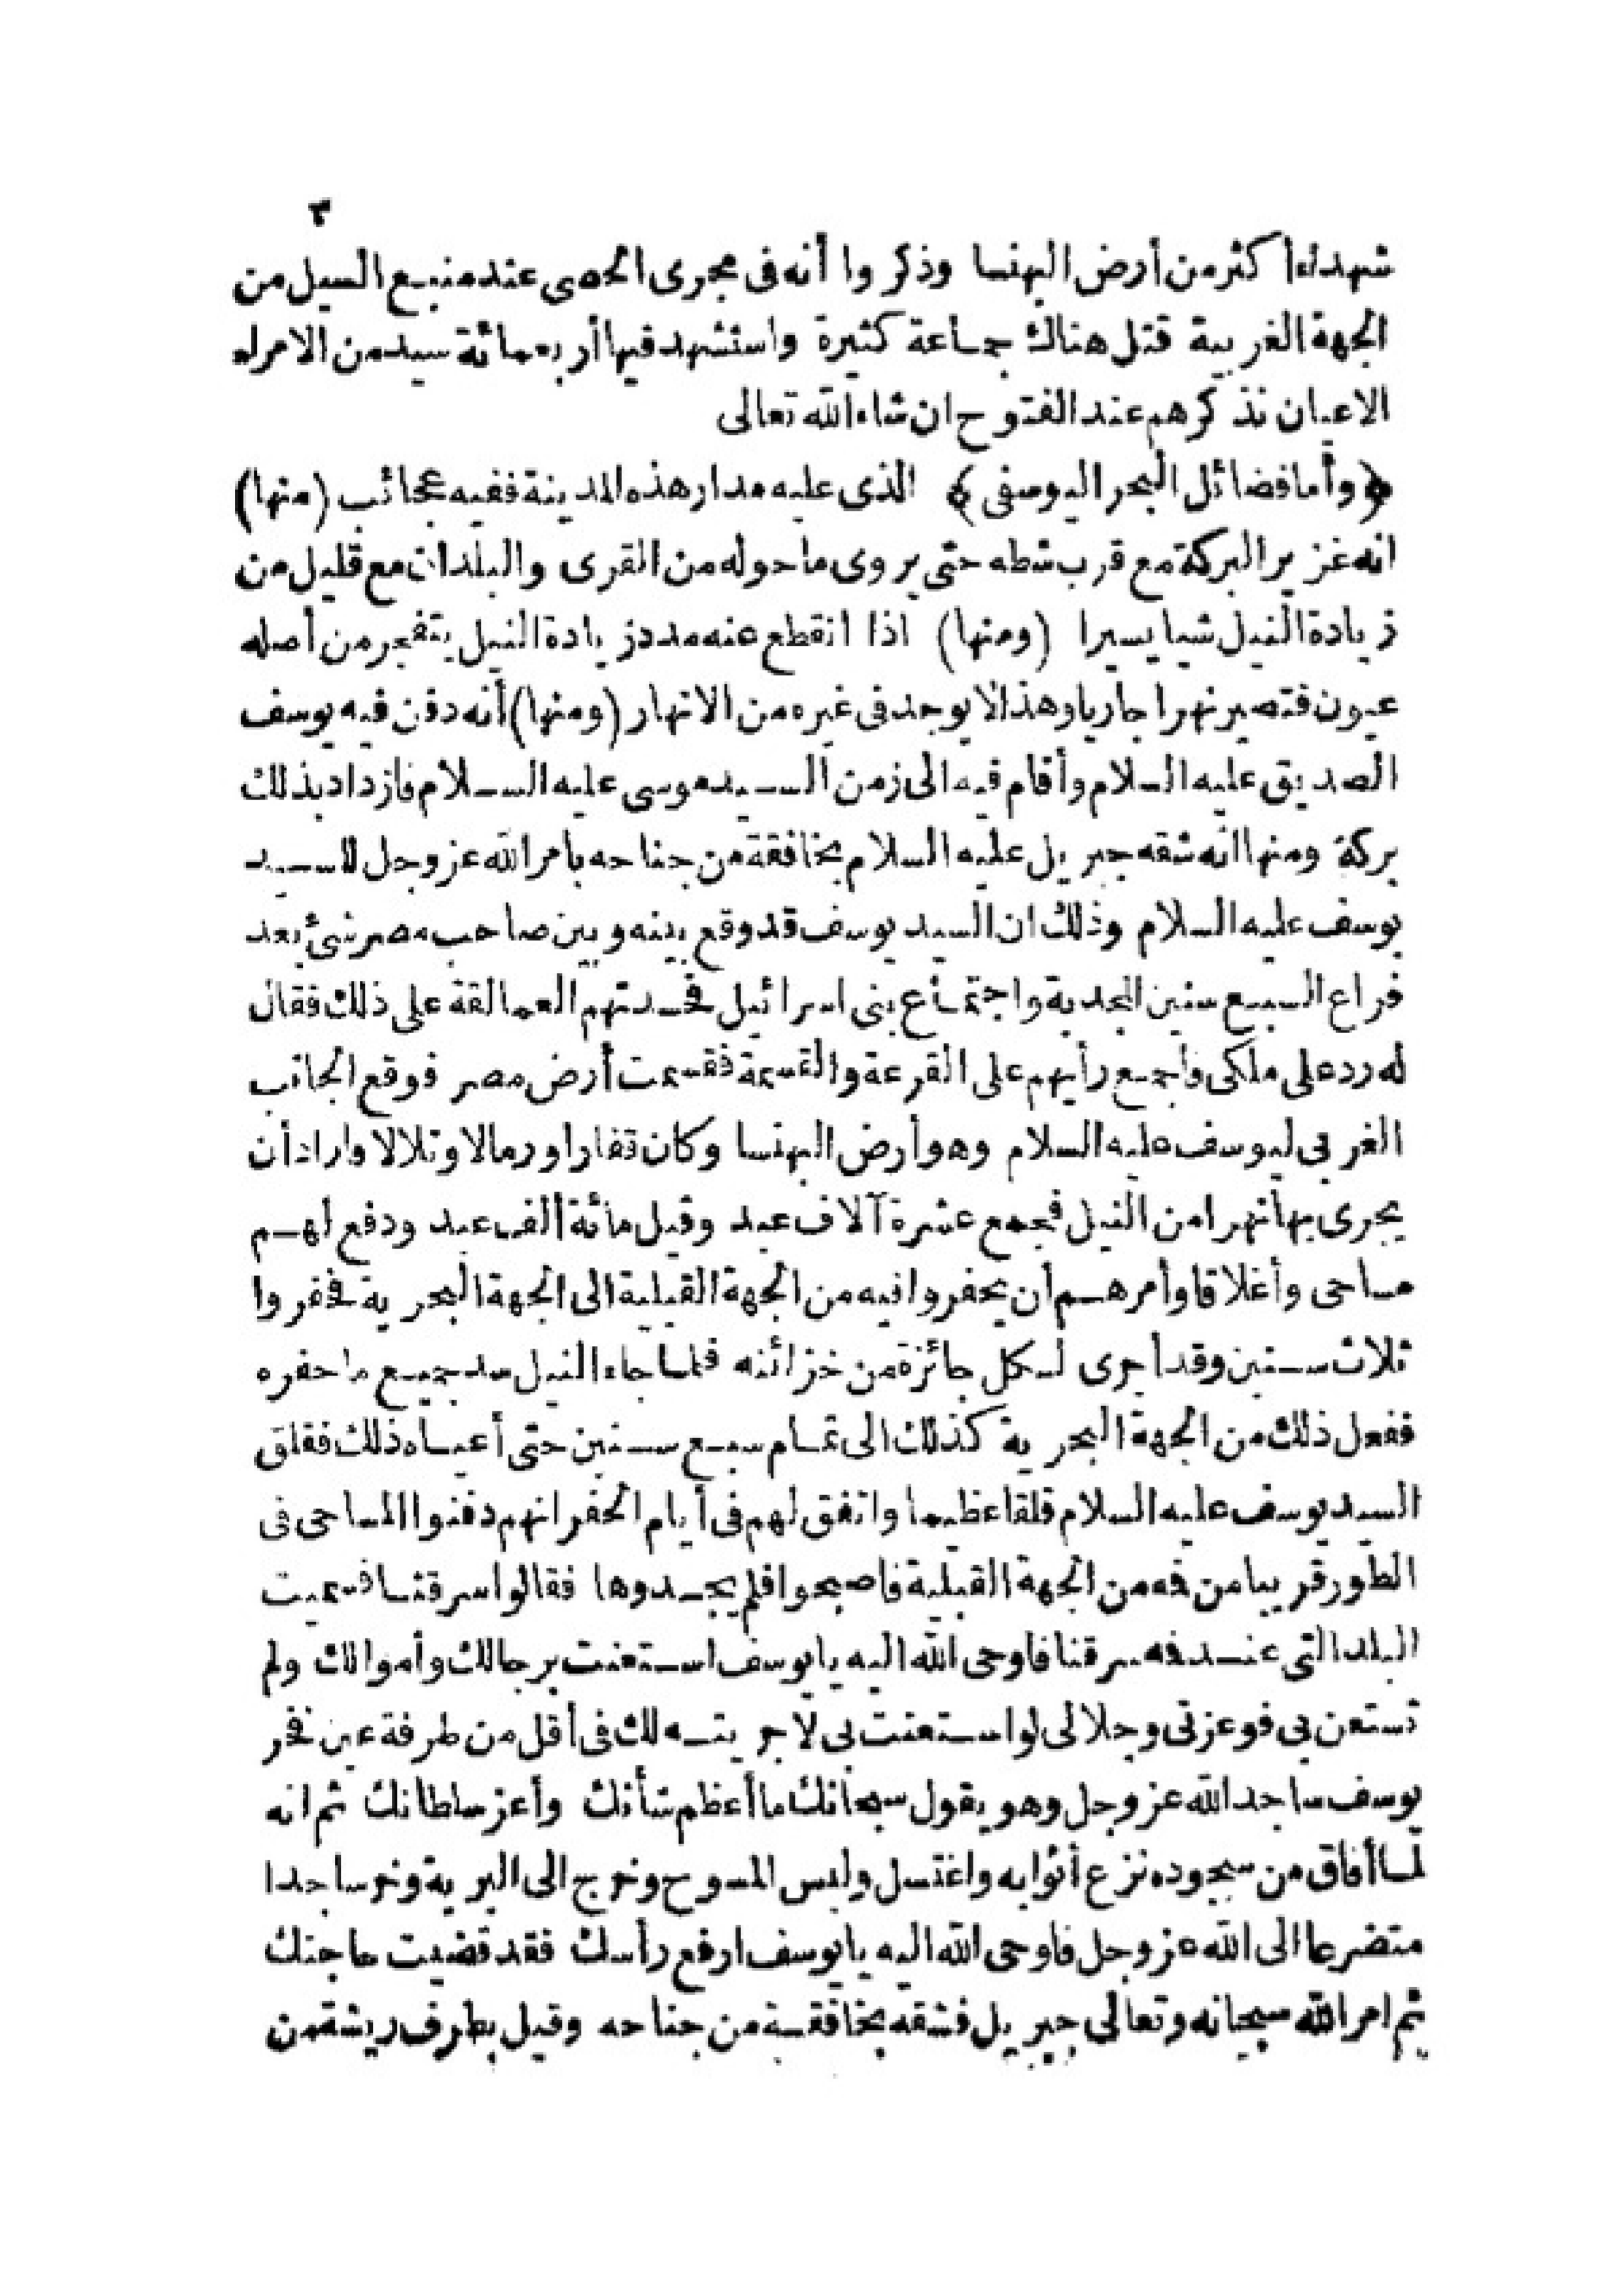 ٣
شهداء أكثر من أرض البهنسا وذكروا أنه فى مجرى الحصى عند منبع السيل من
الجهة الغربية قتل هناك جماعة كثيرة واستشهد فيها أربعمائة سيد من الامراء
الاعيان نذكرهم عند الفتوح ان شاء الله تعالى
﴿وأما فضائل البحر اليوسفى﴾ الذى عليه مدار هذه المدينة ففيه عجائب (منها)
انه غزير البركة مع قرب شطه حتى يروى ما حوله من القرى والبلدان مع قليل من
زيادة النيل شيا يسيرا (ومنها) اذا انقطع عنه مدد زيادة النيل يتفجر من أصله
عيون فتصير نهرا جاريا وهذا لا يوجد فى غيره من الانهار (ومنها) أنه دفن فيه يوسف
الصديق عليه السلام وأقام فيه الى زمن السيد موسى عليه السلام فازداد بذلك
بركة ومنها انه شقه جبريل عليه السلام بخافقة من جناحه بامر الله عز وجل للسيد
يوسف عليه السلام وذلك ان السيد يوسف قد وقع بينه وبين صاحب مصر شئ بعد
فراع السبع سنين المجدبة واجتماع بنى اسرائيل فحسدتهم العمالقة على ذلك فقال
له رد على ملكى فأجمع رأيهم على القرعة والقسمة فقسمت أرض مصر فوقع الجانب
الغربى ليوسف عليه السلام وهو أرض البهنسا وكان قفارا ورمالا وتلالا وارادأن
يجرى بها نهرا من النيل فجمع عشرة آلاف عبد وقيل مائة ألف عبد ودفع لهم
مساحى وأغلاقا وأمرهم أن يحفروا فيه من الجهة القبلية الى الجهة البحرية فحفروا
ثلاث سنين وقد أجرى لكل جائزة من خزائنه فلما جاء النيل سد جميع ما حفره
ففعل ذلك من الجهة البحرية كذلك الى تمام سبع سنين حتى أعياه ذلك فقلق
السيد يوسف عليه السلام قلقا عظيما واتفق لهم فى أيام الحفر انهم دفنوا المساحى فى
الطور قريبا من فه من الجهة القبلية فاصبحوا فلم يجدوها فقالوا سرقنا فسميت
البلد التى عند فه سرقنا فاوحى الله اليه يا يوسف استعنت برجالك وأموالك ولم
تستعن بى فوعزتى وجلالى لو استعنت بى لاجريته لك فى أقل من طرفة عين فخر
يوسف ساجد الله عز وجل وهو يقول سبحانك ما أعظم شأنك وأعز سلطانك ثم انه
لما أفاق من سجوده نزع أثوابه واغتسل ولبس المسوح وخرج الى البرية وخر ساجدا
متضرعا الى الله عز وجل فاوحى الله اليه يا يوسف ارفع رأسك فقد قضيت حاجتك
ثم امر الله سبحانه وتعالى جبريل فشقه بخافقة من جناحه وقيل بطرف ريشة من